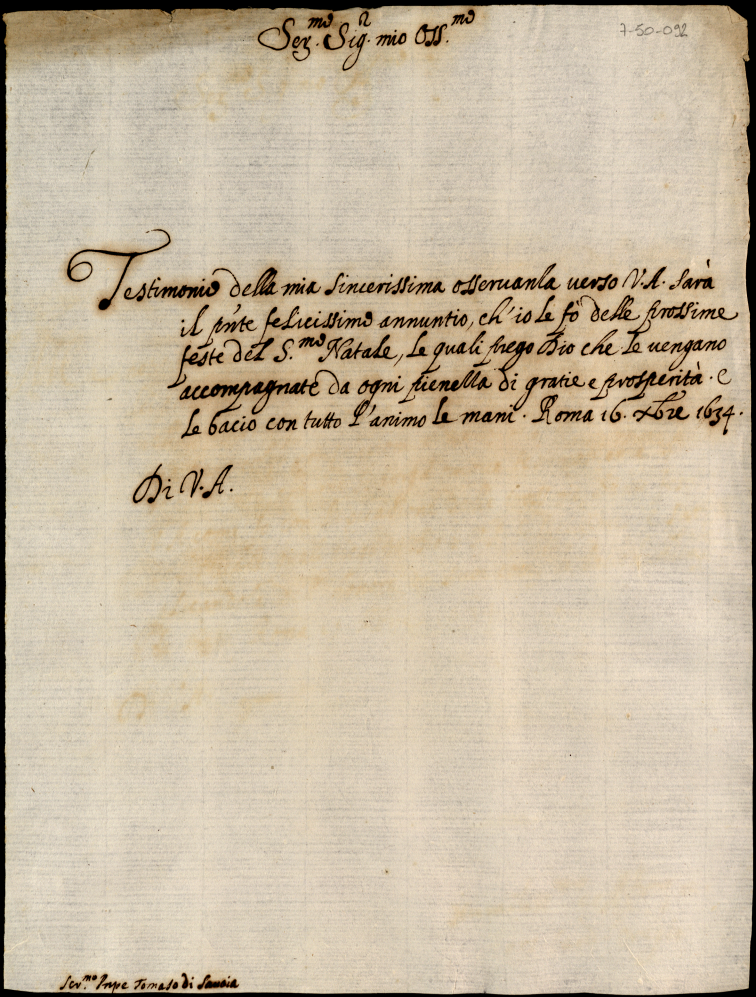 7-50-092
Ser.mo Sig.r mio Oss.mo
Testimonio della mia sincerissima osseruanza uerso V.A. sarà
il pnte felicissimo annuntio, ch'io le fò delle prossime
feste del S.mo Natale, le quali prego Dio che le uengano
accompagnate da ogni pienezza di gratie e prosperità. e
le bacio con tutto l'animo le mani. Roma 16. xbre 1634.
Di V.A.
Ser.mo Pnpe Tomaso di Sauoia